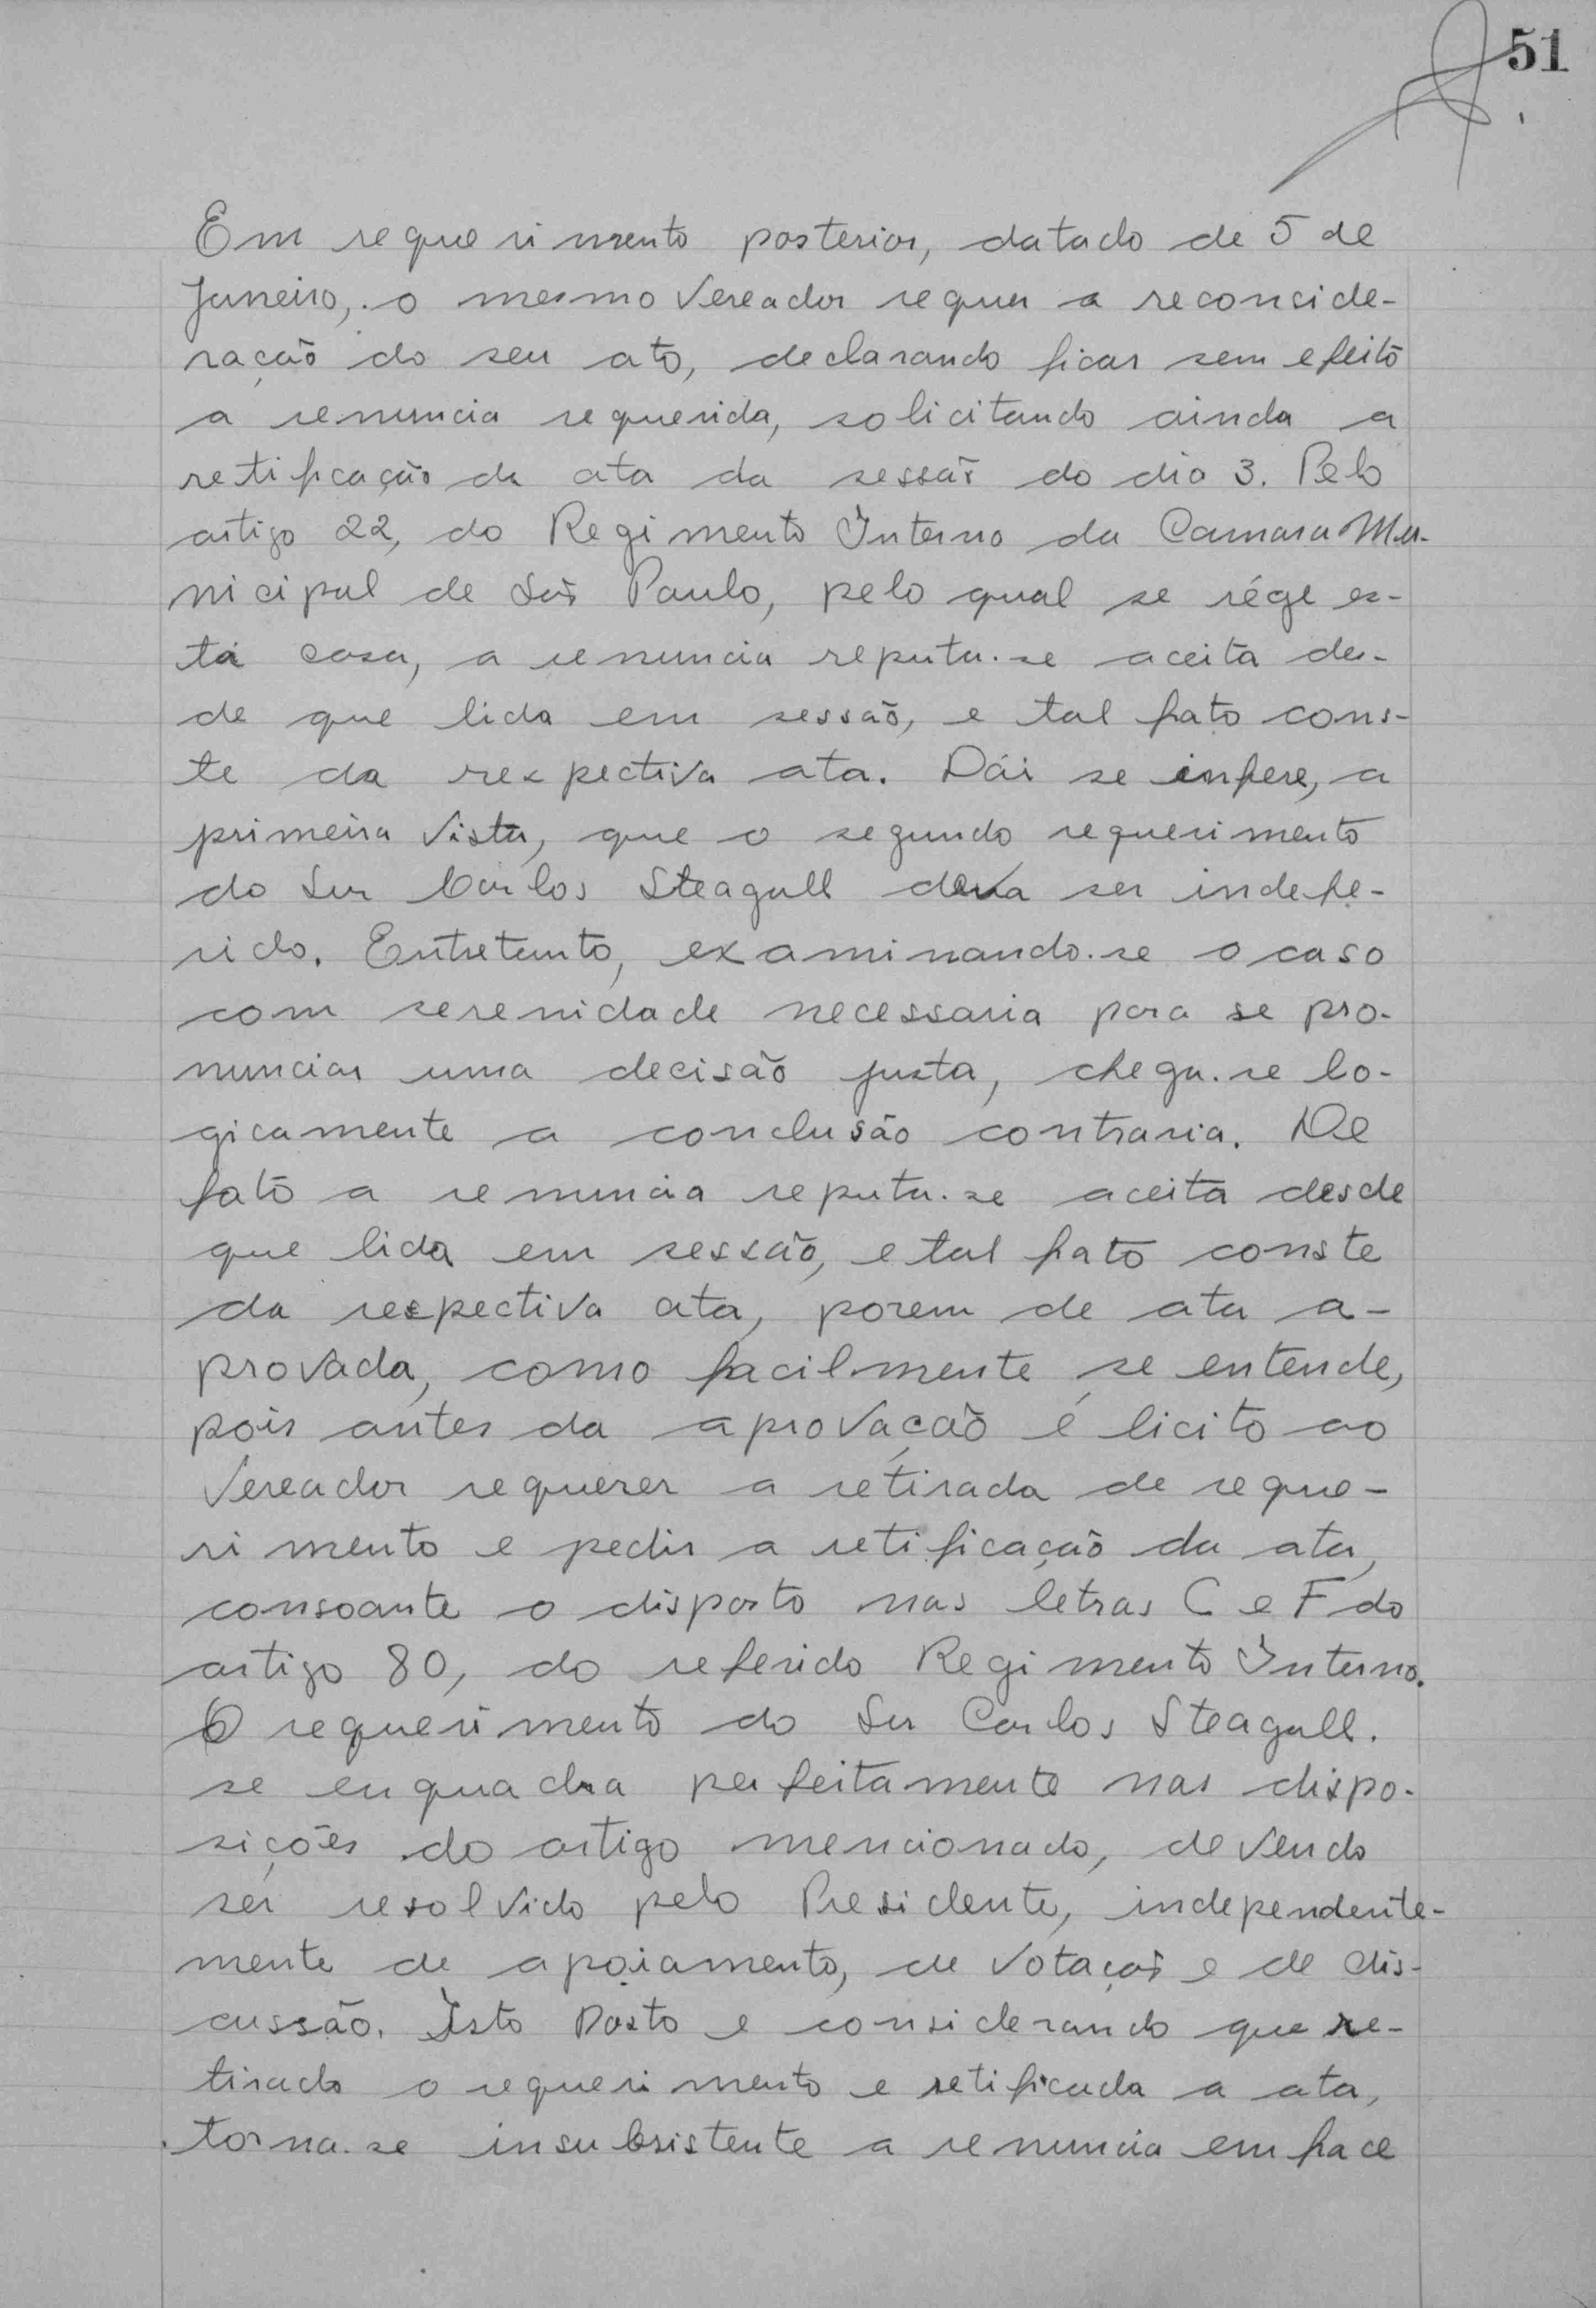 51
Em requerimento posterior, datado de 5 de
Janeiro, o mesmo Vereador requer a reconside-
ração do seu ato, declarando ficar sem efeito
a renuncia requerida, solicitando ainda a
retificação da ata da sessão do dia 3. Pelo
artigo 22, do Regimento Interno da Camara Mu-
nicipal de São Paulo, pelo qual se rége es-
ta casa, a renuncia reputa-se aceita des-
de que lida em sessão, e tal fato cons-
te da respectiva ata. Dái se infere, a
primeira vista, que o segundo requerimento
do Snr Carlos Steagall deva ser indefe-
rido. Entretanto, examinando-se o caso
com serenidade necessaria para se pro-
nunciar uma decisão justa, chega-se lo-
gicamente a conclusão contraria. De
fato a renuncia reputa-se aceita desde
que lida em sessão, e tal fato conste
da respectiva ata, porem de ata a-
provada, como facilmente se entende,
pois antes da aprovação é licito ao
Vereador requerer a retirada de reque-
rimento e pedir a retificação da ata,
consoante o disposto nas letras C e F do
artigo 80, do referido Regimento Interno.
O requerimento do Snr Carlos Steagall.
se enquadra perfeitamente nas dispo-
sições do artigo mencionado, devendo
ser resolvido pelo Presidente, independente-
mente de apoiamento, de votação e de dis-
cussão. Isto Posto e considerando que re-
tirado o requerimento e retificada a ata,
torna-se insubsistente a renuncia em face